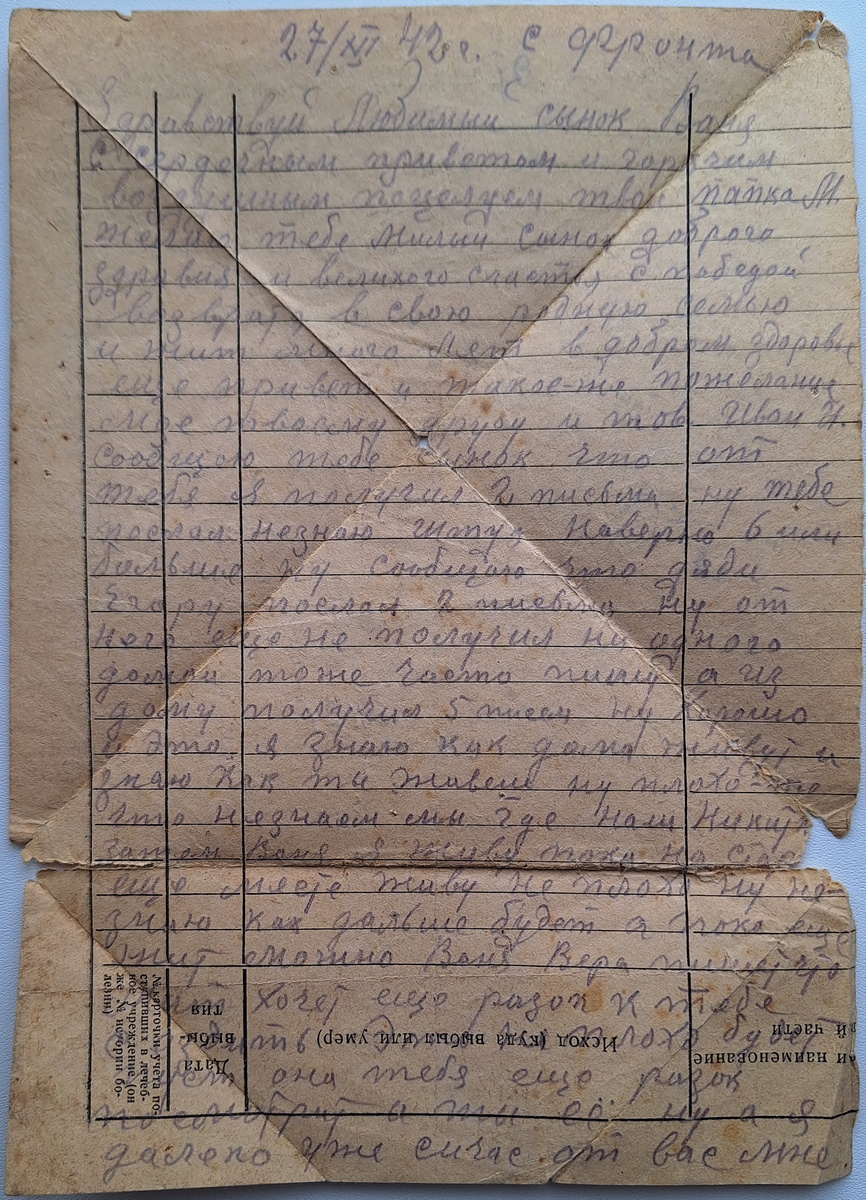 27/XI 42 г. с фронта
Здравствуй Любимый сынок Ваня
С сердечным приветом и горячим
воздушным поцелуем твой папка М.
желаю тебе милый сынок доброго
здравия и великого счастья с победой
возврата в свою родную семью
и жит много лет в добром здоровье
еще привет и такое-же пожелание
мое твоему другу и тов. Иван И.
сообщою тебе сынок что от
тебя я получил 2 писма ну тебе
послал незнаю штук наверно 6 или
больше ну сообщою что дяди
Егору послал 2 писма ну от
него еще не получил ни одного
домой тоже часто пишу а из
дому получил 5 писем ну хорошо
и это я знаю как дома живут и
знаю как ты живеш ну плохо-то
что незнаем мы где наш Никита
затем Ваня я живу пока на
еще месте живу не плохо ну не-
знаю как дальше будет а пока еще
жит можно Ваня Вера пишет что
хочет еще разок к тебе
это не плохо будет
она тебя еще разок
посмотрит а ты её ну а я
далеко уже сичас от вас мне
№ карточки учета по-
ступивших в лечеб-
ное учреждение (он
же № истории бо-
лезни)
Дата
выбы-
тия
Исход (куда выбыл или умер)
и наименование
й части